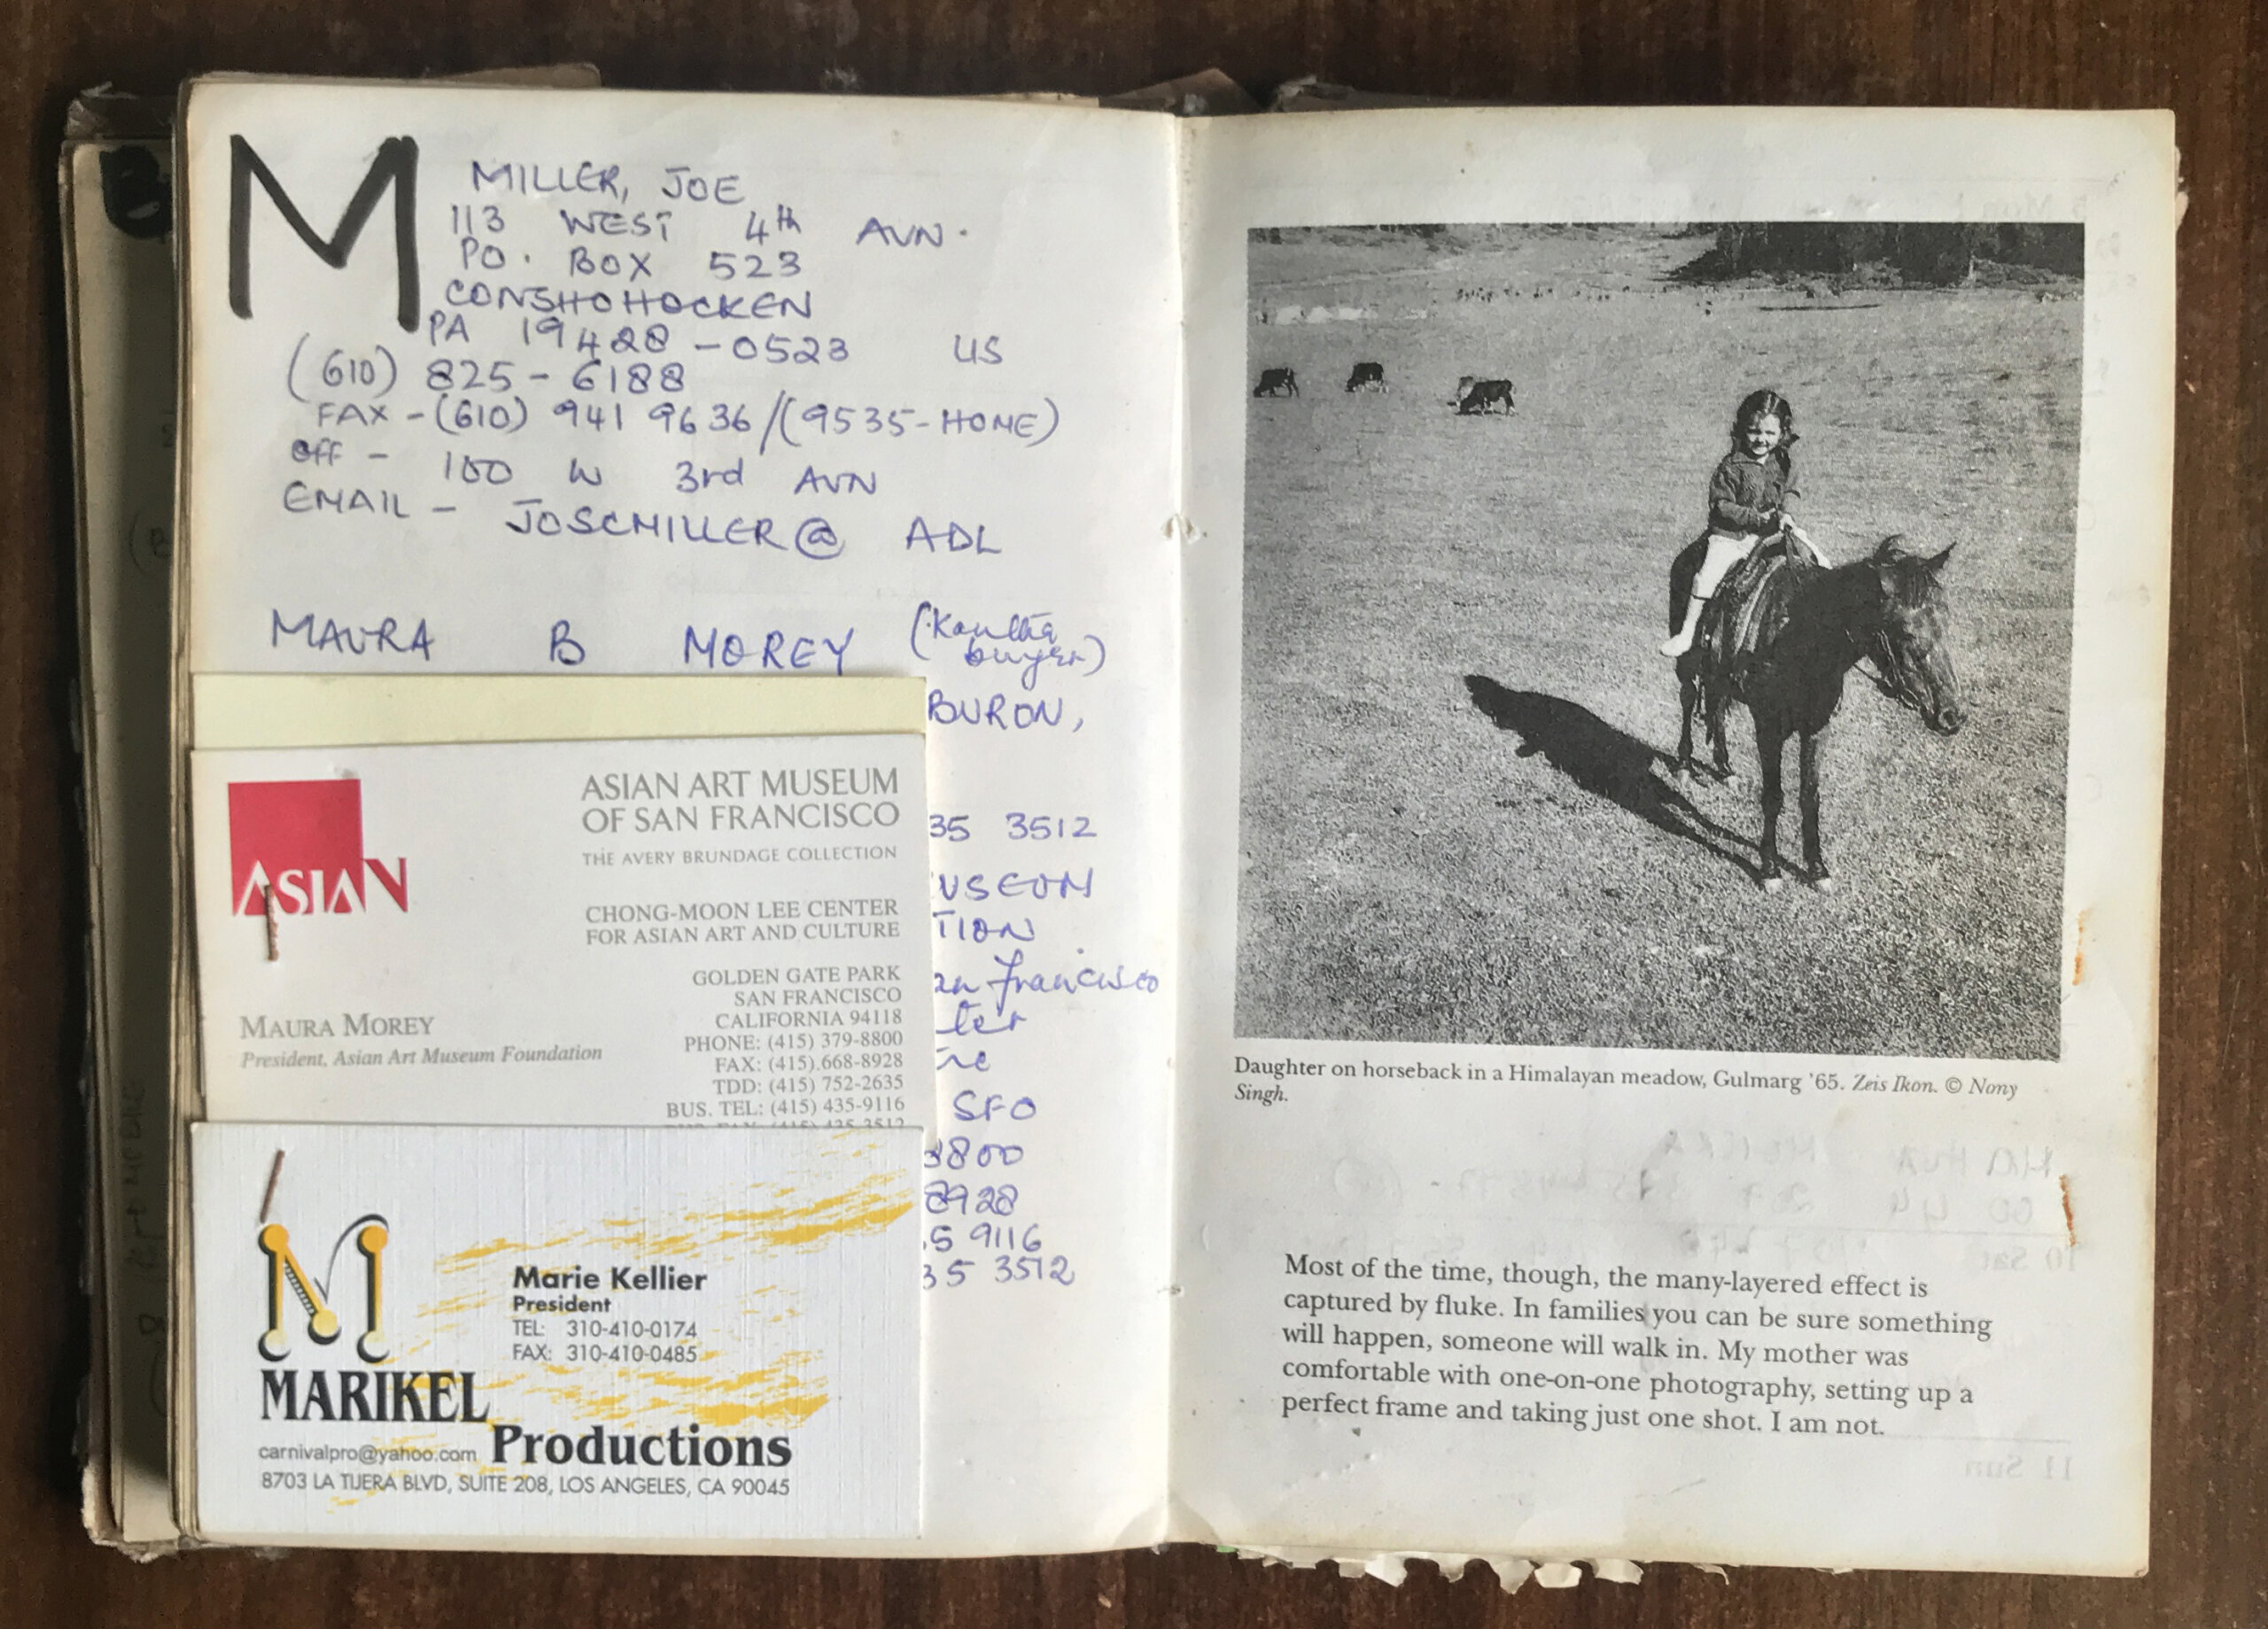 M
MILLER, JOE
113 WEST 4th AVN.
PO. BOX 523
CONSHOHOCKEN
PA 19428-0523 US
(610) 825-6188
FAX-(610) 941 9636/(9535-HOME)
Off - 100 W 3rd AVN
EMAIL - JOSCMILLER@ AOL
MAURA B MOREY (Kantha
buyer)
BURON,
35 3512
USEUM
TION
an francisco
ter
re
SFO
3800
8928
5 9116
35 3512
ASIAN
ASIAN ART MUSEUM
OF SAN FRANCISCO
THE AVERY BRUNDAGE COLLECTION
CHONG-MOON LEE CENTER
FOR ASIAN ART AND CULTURE
GOLDEN GATE PARK
SAN FRANCISCO
CALIFORNIA 94118
PHONE: (415) 379-8800
FAX: (415).668-8928
TDD: (415) 752-2635
BUS. TEL: (415) 435-9116
MAURA MOREY
President, Asian Art Museum Foundation
M
Marie Kellier
President
TEL: 310-410-0174
FAX: 310-410-0485
MARIKEL
Productions
carnivalpro@yahoo.com
8703 LA TIJERA BLVD, SUITE 208, LOS ANGELES, CA 90045
Daughter on horseback in a Himalayan meadow, Gulmarg '65. Zeis Ikon. © Nony
Singh.
Most of the time, though, the many-layered effect is
captured by fluke. In families you can be sure something
will happen, someone will walk in. My mother was
comfortable with one-on-one photography, setting up a
perfect frame and taking just one shot. I am not.